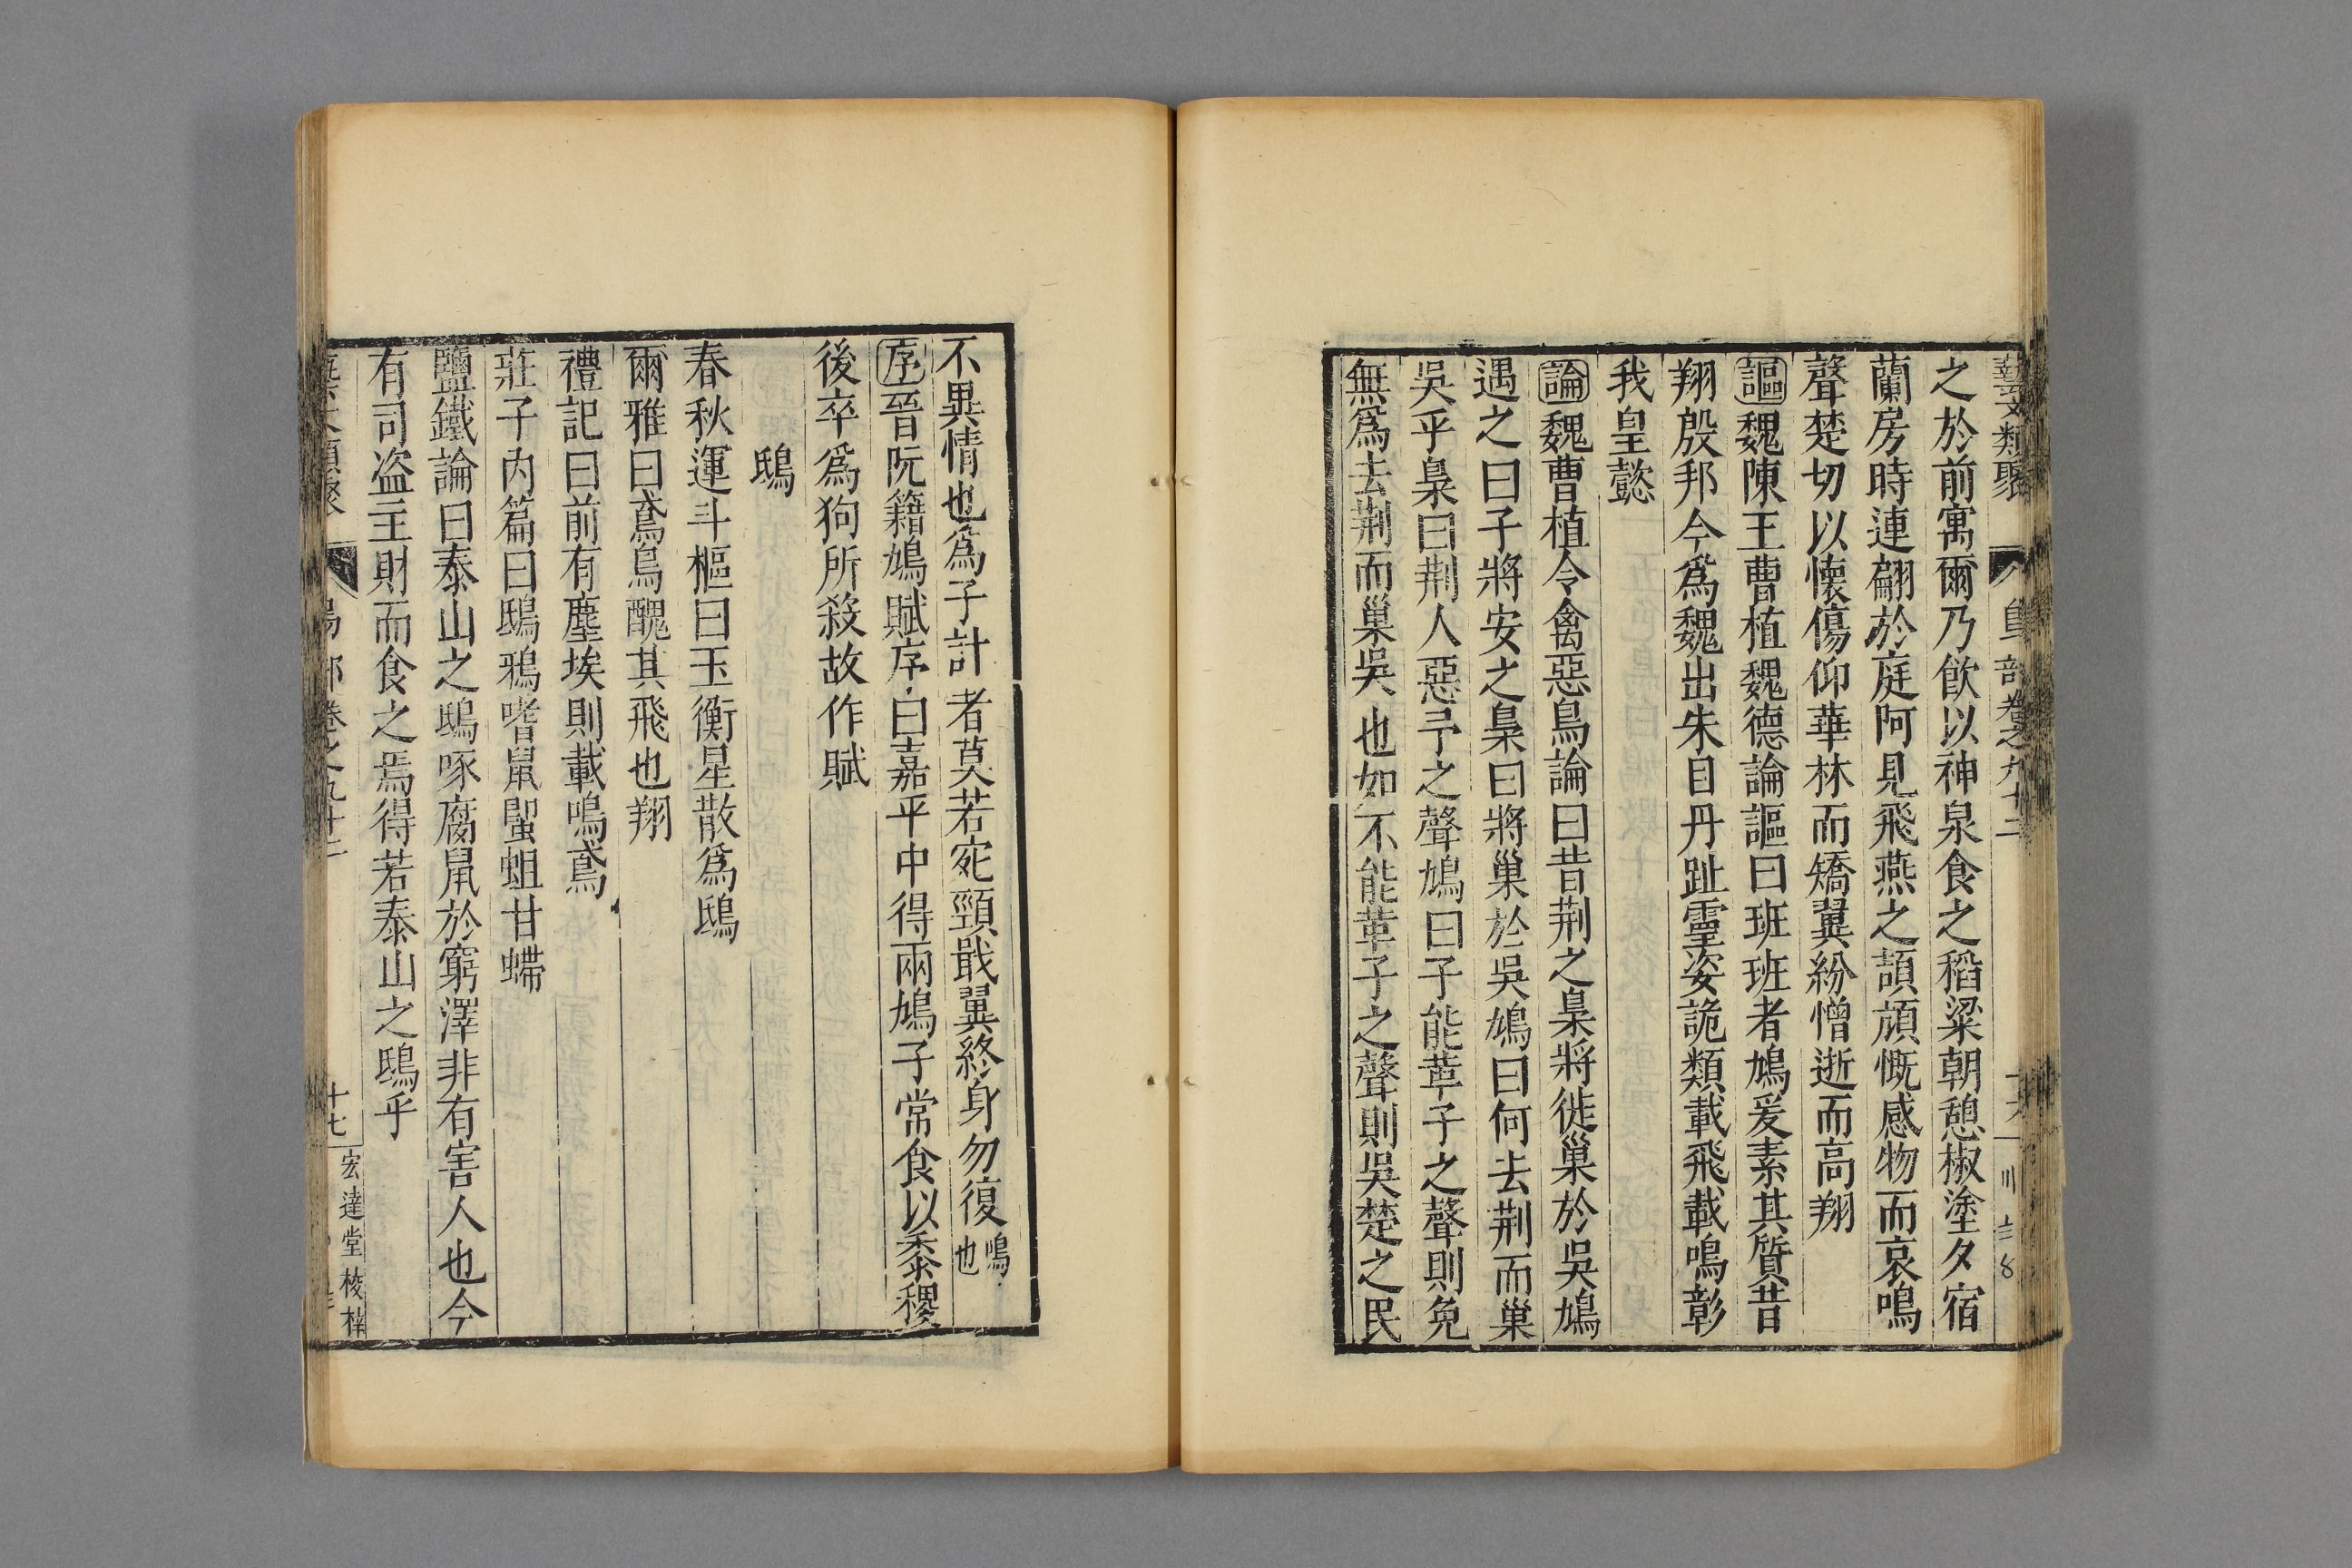 藝文類聚 鳥部卷之九十二 十六
之於前寓爾乃飲以神泉食之稻粱朝憩椒塗夕宿
蘭房時連翩於庭阿見飛燕之頡頏慨感物而哀鳴
聲楚切以懷傷仰華林而矯翼紛憎逝而高翔
謳魏陳王曹植魏德論謳曰班班者鳩爰素其質昔
翔殷邦今爲魏出朱目丹趾靈姿詭類載飛載鳴彰
我皇懿
論魏曹植令禽惡鳥論曰昔荆之梟將徙巢於吳鳩
遇之曰子將安之梟曰將巢於吳鳩曰何去荆而巢
吳乎梟曰荆人惡予之聲鳩曰子能革子之聲則免
無爲去荆而巢吳也如不能革子之聲則吳楚之民
不異情也爲子計者莫若宛頸戢翼終身勿復鳴也
序晉阮籍鳩賦序曰嘉平中得兩鳩子常食以黍稷
後卒爲狗所殺故作賦
鴟
春秋運斗樞曰玉衡星散爲鴟
爾雅曰鳶鳥醜其飛也翔
禮記曰前有塵埃則載鳴鳶
莊子內篇曰鴟鴉嗜鼠蝍蛆甘螮
鹽鐵論曰泰山之鴟啄腐鼠於窮澤非有害人也今
有司盗主財而食之焉得若泰山之鴟乎
卷之九十二 十七 宏達堂棱梓